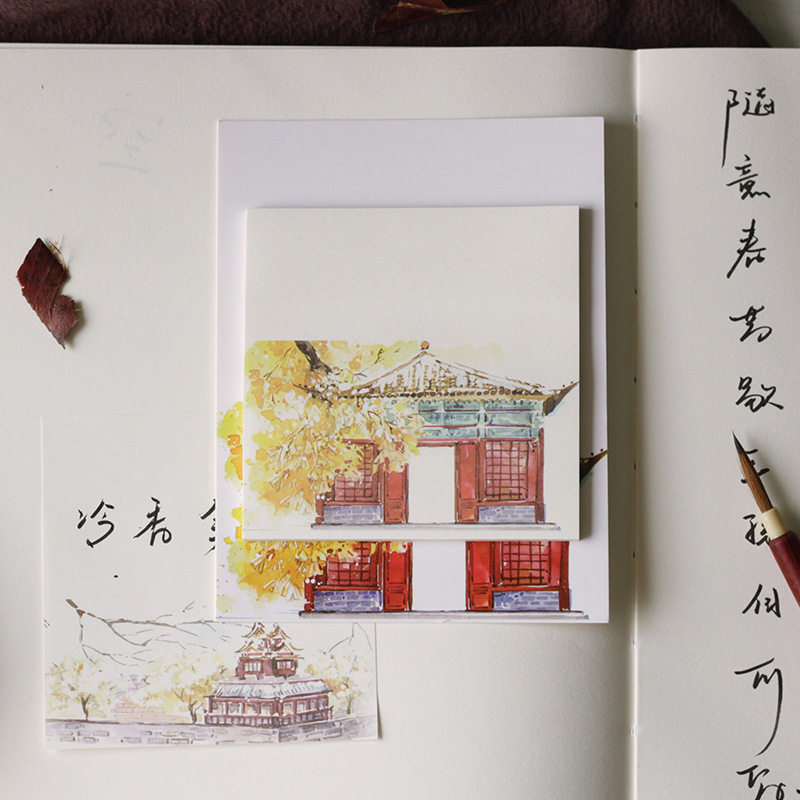 随意春芳歇王孫自可
冷香